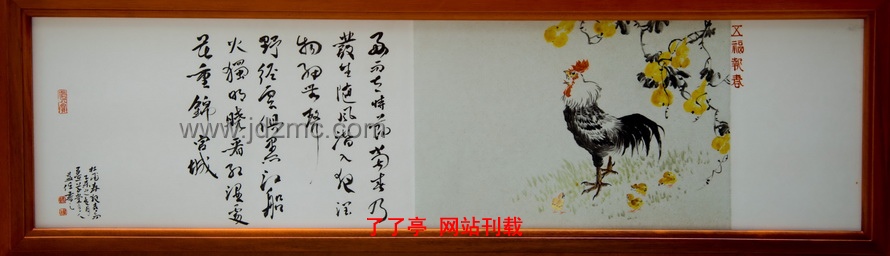 五福報春
好雨知時節當春乃
發生随風潛入夜潤
物細無聲
野徑雲俱黑江船
火獨明曉看紅濕處
花重錦官城
杜甫春夜喜雨
www.jdzmc.com
了了亭 网站刊载